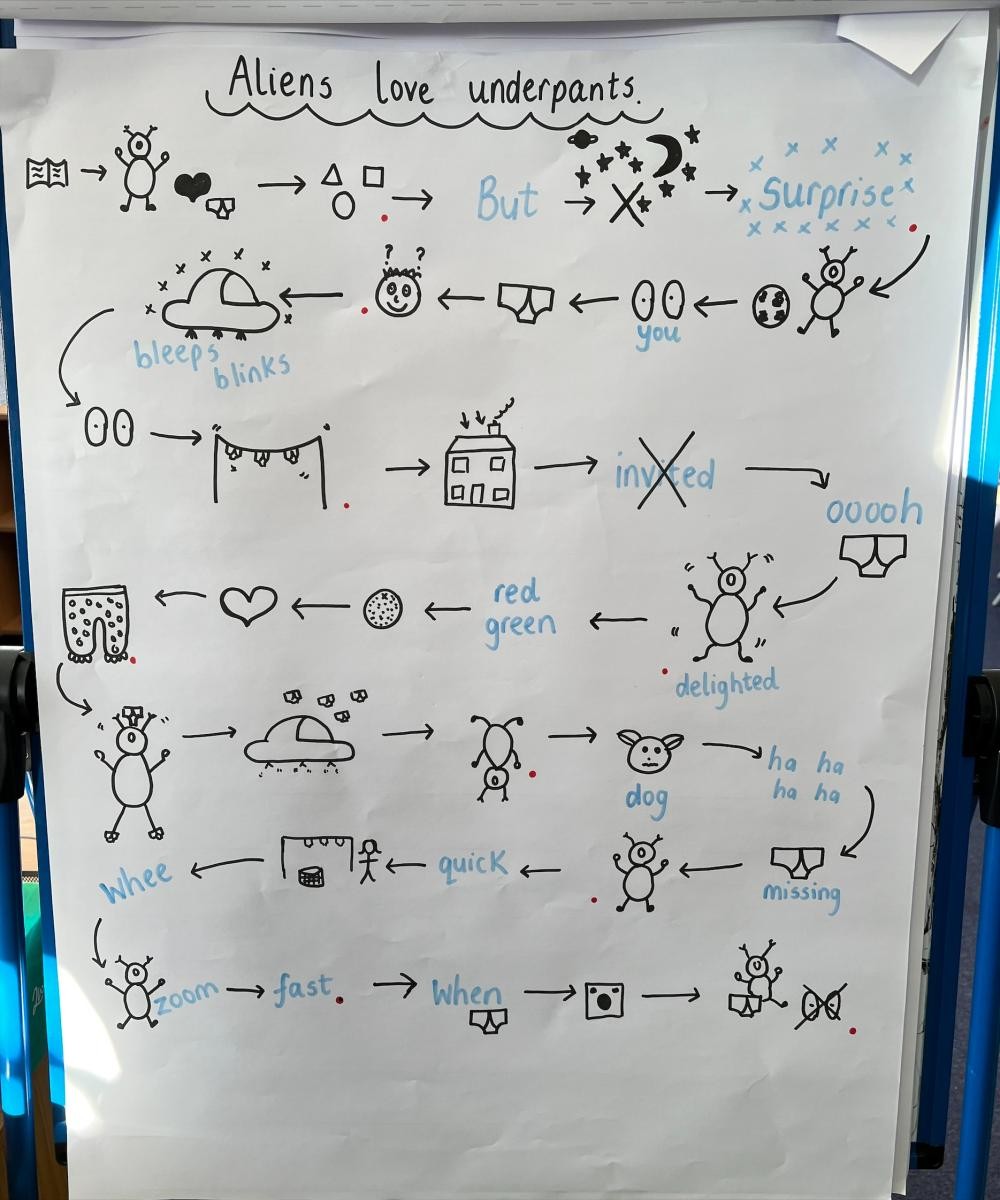 Aliens love underpants.
But
Surprise
? ?
you
bleeps
blinks
invited
ooooh
red
green
delighted
dog
ha ha
ha ha
missing
quick
Whee
zoom
fast.
When